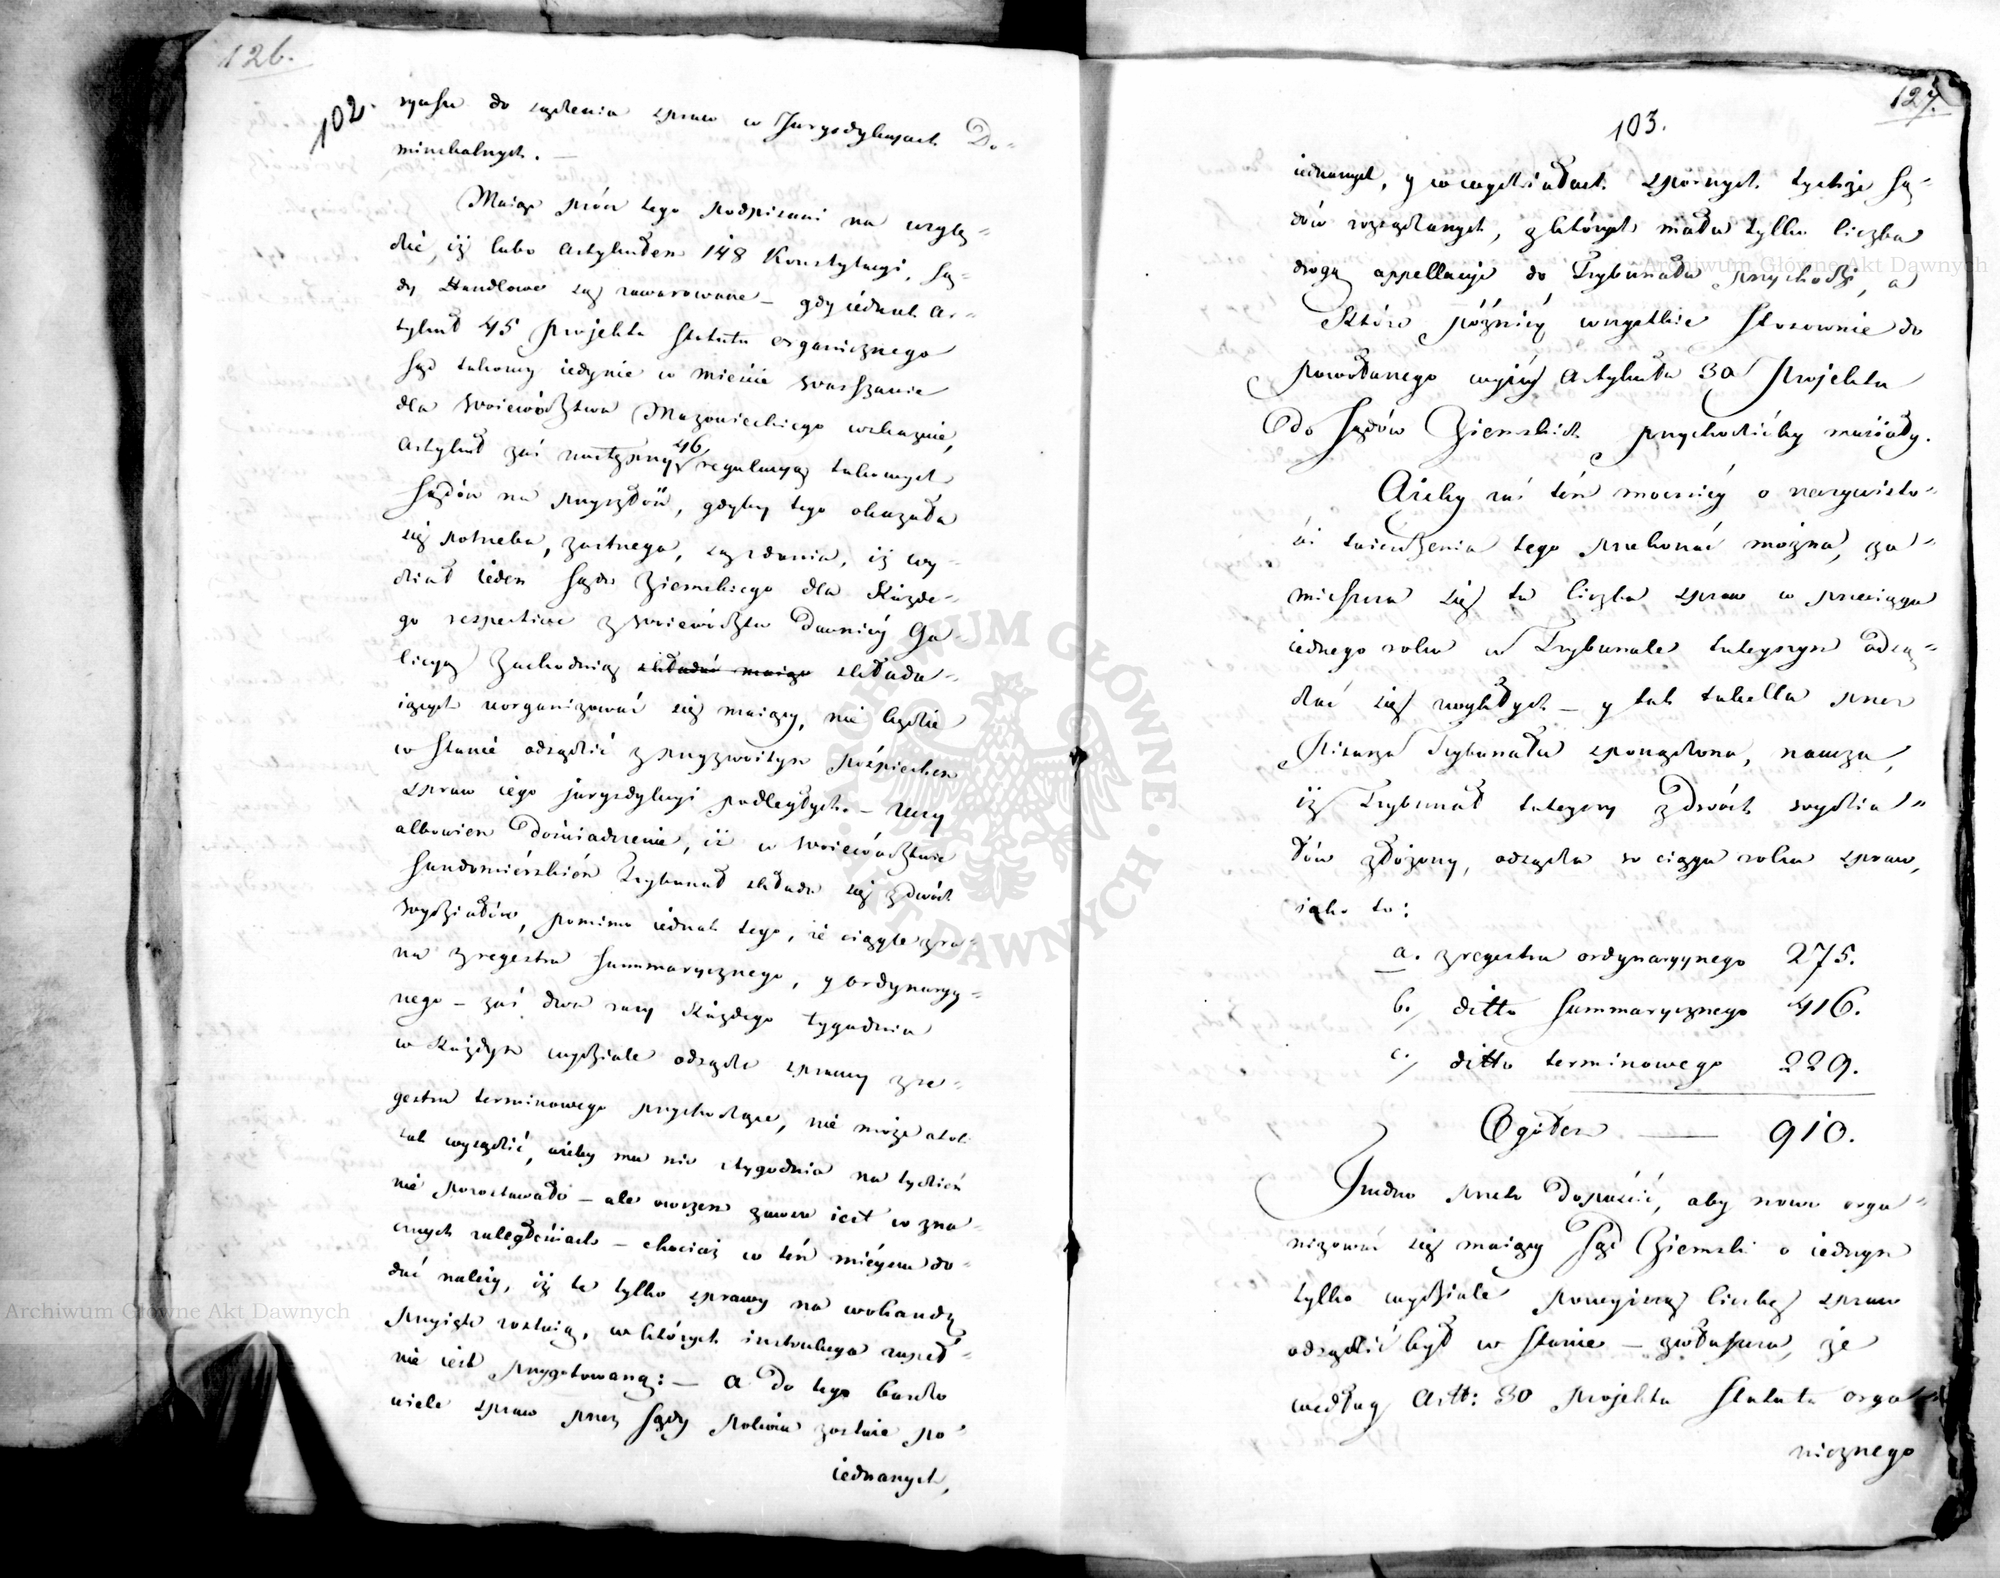 126.
102.
rysu do sądzenia spraw w Jurysdykcyach Do-
minikalnych. —
Maiąc prócz tego podpisani na wzglę-
dzie, iż lubo artykułem 148 Konstytucyi, Są-
dy Handlowe są zawarowane — gdy iednak Ar-
tykuł 45 Projektu Statutu organicznego
Sąd takowy iedynie w mieście Warszawie
dla Woiewództwa Mazowieckiego wskazuie,
Artykuł zaś następny 46 regulacyą takowych
Sądów na przyszłość, gdyby tego okazała
się potrzeba, zastrzega, są zdania, iż wy-
dział ieden Sądu Ziemskiego dla Każde-
go respective z Woiewództw dawniéy Ga-
licyą Zachodnią składać maiąc składa-
iących uorganizować się maiący, nie będzie
w stanie odsądzić z przyzwoitym pośpiechem
spraw iego jurysdykcyi podległych. — Uczy
albowiem doświadczenie, iż w Woiewództwie
Sandomiérskiém Trybunał składa się z dwóch
Wydziałów, pomimo iednak tego, że ciągle z ra-
na z regestru Summarycznego, y ordynaryy-
nego — zaś dwa razy Każdego tygodnia
w Każdym wydziale odsądza sprawy z re-
gestru terminowego przychodzące, nie może atoli
tak wysądzić, ażeby mu nic z tygodnia na tydzień
nie pozostawało — ale owszem zawsze iest w zna-
cznych zaległościach — chociaż w tém mieyscu do-
dać należy, iż te tylko sprawy na wokandę
przyięte zostaią, w których instrukcya zupeł-
nie iest przygotowaną: — a do tego bardzo
wiele spraw przez Sądy Pokoiu zostaie po-
iednanych,
127.
103.
iednanych, y w wydziałach spornych tychże Są-
dów rozsądzanych, z których mała tylko liczba
drogą appellacyi do Trybunału przychodzi, a
Które późniéy wszystkie Stosownie do
powołanego wyżéy Artykułu 30 Projektu
do Sądów Ziemskich przychodzićby musiały.
Ażeby zaś tém mocniéy o rzeczywisto-
ści twierdzenia tego przekonać można, za-
mieszcza się tu liczba spraw w przeciągu
iednego roku w Trybunale tuteyszym odsą-
dzać się zwykłych — y tak tabella przez
Pisarza Trybunału sporządzona, naucza,
iż Trybunał tuteyszy z dwóch wydzia-
łów złożony, odsądza w ciągu roku spraw,
iako to:
a. z regestru ordynaryynego 275.
b./ ditto Summarycznego 416.
c./ ditto terminowego 229.
Ogółem — 910.
Trudno przeto dopuścić, aby nowo orga-
nizować się maiący Sąd Ziemski o iednym
tylko wydziale powyższą liczbę spraw
odsądzić był w Stanie — zwłaszcza, że
według Artt: 30 Projektu Statutu orga-
nicznego